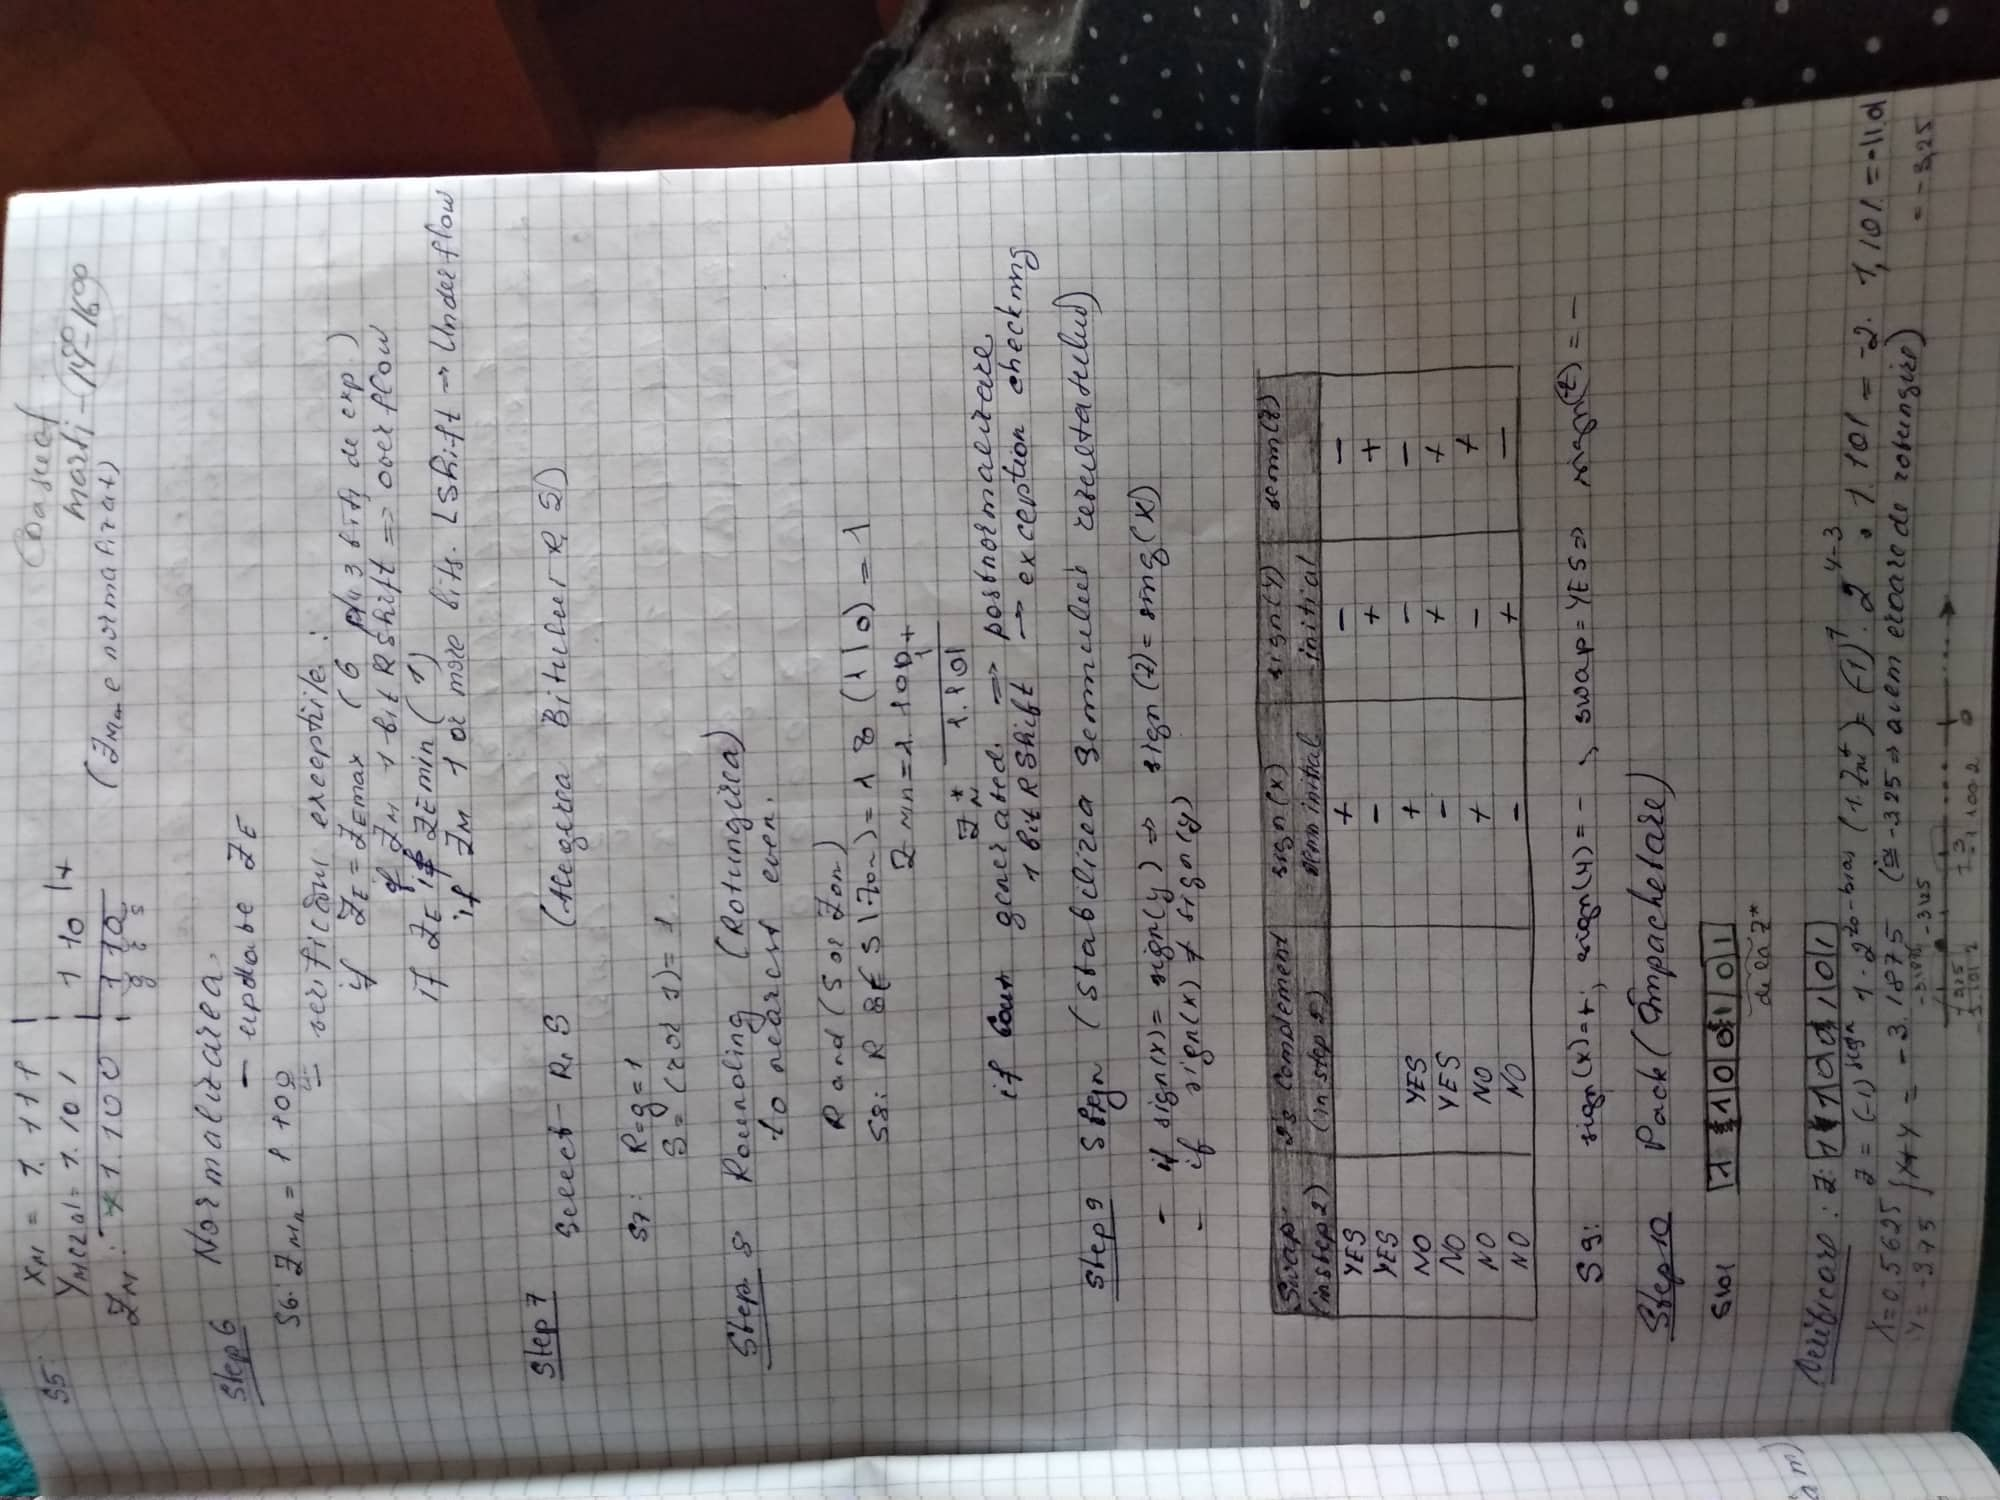 marți - 14⁰⁰-16⁰⁰
S5 XM = 1. 111
YM = 1. 101 1 10 1+
ZM: 1.100 1 110
g r s
(ZMn e normalizat)
Step 6 Normalizarea.
- update ZE
S6: ZMn = 1 100
- verificăm excepțiile:
if ZE = ZEmax (6 3 biți de exp.)
if ZM 1 bit RShift => overflow
if ZE ZEmin (1)
if ZM 1 or more bits LShift → Underflow
Step 7 Select R, S (Alegerea Biților R, S)
S7: R=g=1
S=(r or s)=1
Step 8 Rounding (Rotunjirea)
to nearest even.
R and (S or Z0m)
S8: R & (S | Z0m) = 1 & (1 | 0) = 1
ZMn = 1.100+
1
Z* 1.101
if Cout generated => postnormalizare
1 bit RShift → exception checking
Step 9 Sign (Stabilirea Semnului rezultatului)
- if sign(x) = sign(y) => sign(z) = sing(x)
- if sign(x) ≠ sign(y)
Swap 2's Complement sign(x) sign(y) semn(z)
(in step 2) (in step 2) semn initial initial
YES + - -
YES - + +
NO YES + - -
NO YES - + +
NO NO + - +
NO NO - + -
S9: sign(x)=+; sign(y)=-, swap=YES => sign(z)=-
Step 10 Pack (Împachetare)
S10 1 100 101
de la Z*
Verificare: Z: 1 100 101
Z = (-1)sign · 2 -bias (1. ) = (-1)1 · 2 4-3 · 1.101 = -2 · 1,101 = -11,01
= -3,25
X=0.5625
Y=-3.75
X+Y = -3.1875 (≅ -3.25 => avem eroare de rotunjire)
-3.1875 -3.125